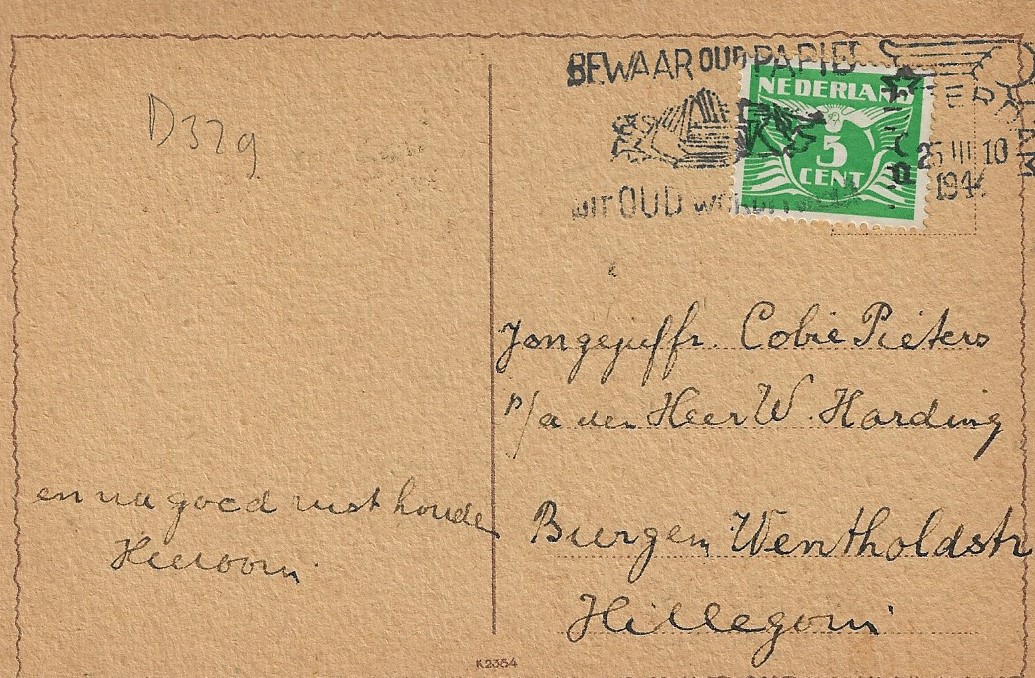 BEWAAR OUD PAPIER
NEDERLAND
5
CENT
25 III 10
194
UIT OUD WORDT
D329
Jongejuffr. Cobie Pieters
p/a den Heer W. Harding
en nu goed rust houden
Heeroom
Burgem. Wentholdstr
Hillegom
K2354